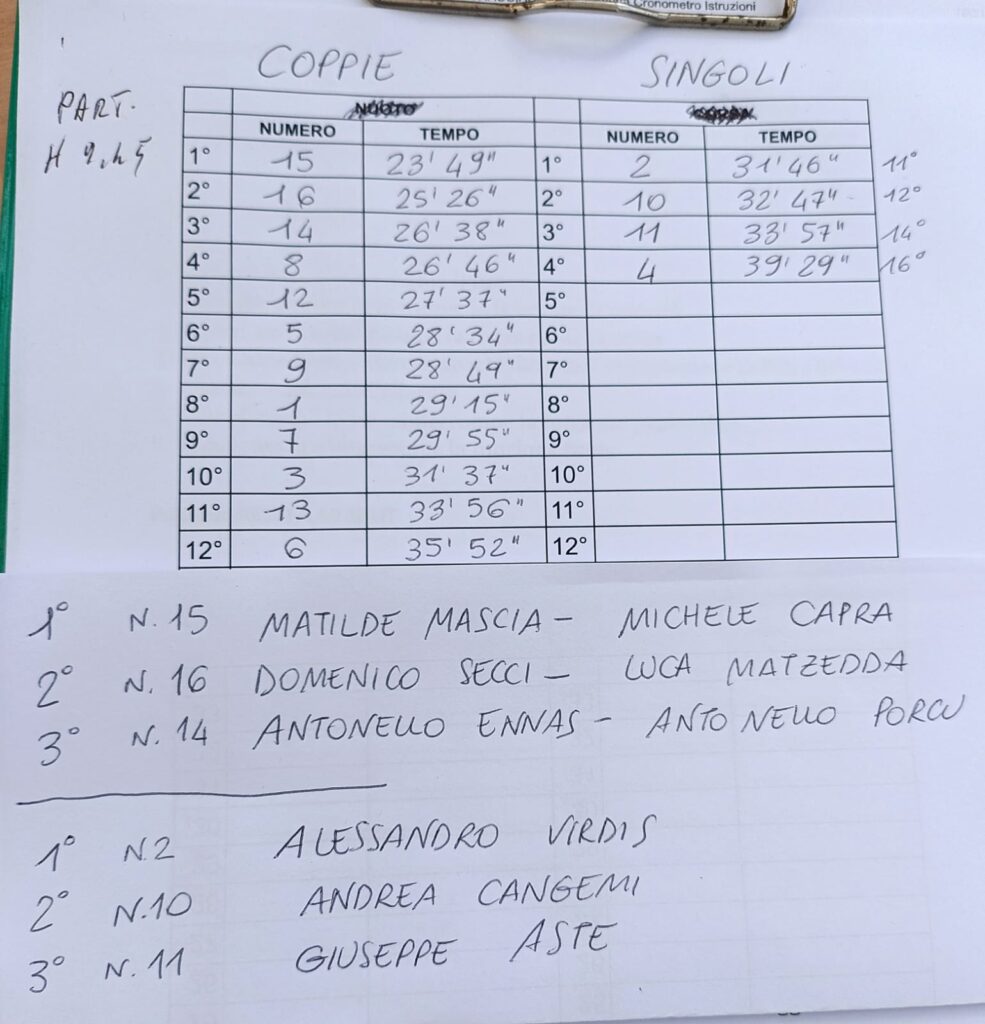 Cronometro Istruzioni
COPPIE SINGOLI
PART.
H 9.45
NUOTO
NUMERO TEMPO NUMERO TEMPO
1° 15 23' 49" 1° 2 31' 46" 11°
2° 16 25' 26" 2° 10 32' 47" 12°
3° 14 26' 38" 3° 11 33' 57" 14°
4° 8 26' 46" 4° 4 39' 29" 16°
5° 12 27' 37" 5°
6° 5 28' 34" 6°
7° 9 28' 49" 7°
8° 1 29' 15" 8°
9° 7 29' 55" 9°
10° 3 31' 37" 10°
11° 13 33' 56" 11°
12° 6 35' 52" 12°
1° N. 15 MATILDE MASCIA - MICHELE CAPRA
2° N. 16 DOMENICO SECCI - LUCA MATZEDDA
3° N. 14 ANTONELLO ENNAS - ANTONELLO PORCU
1° N.2 ALESSANDRO VIRDIS
2° N.10 ANDREA CANGEMI
3° N. 11 GIUSEPPE ASTE